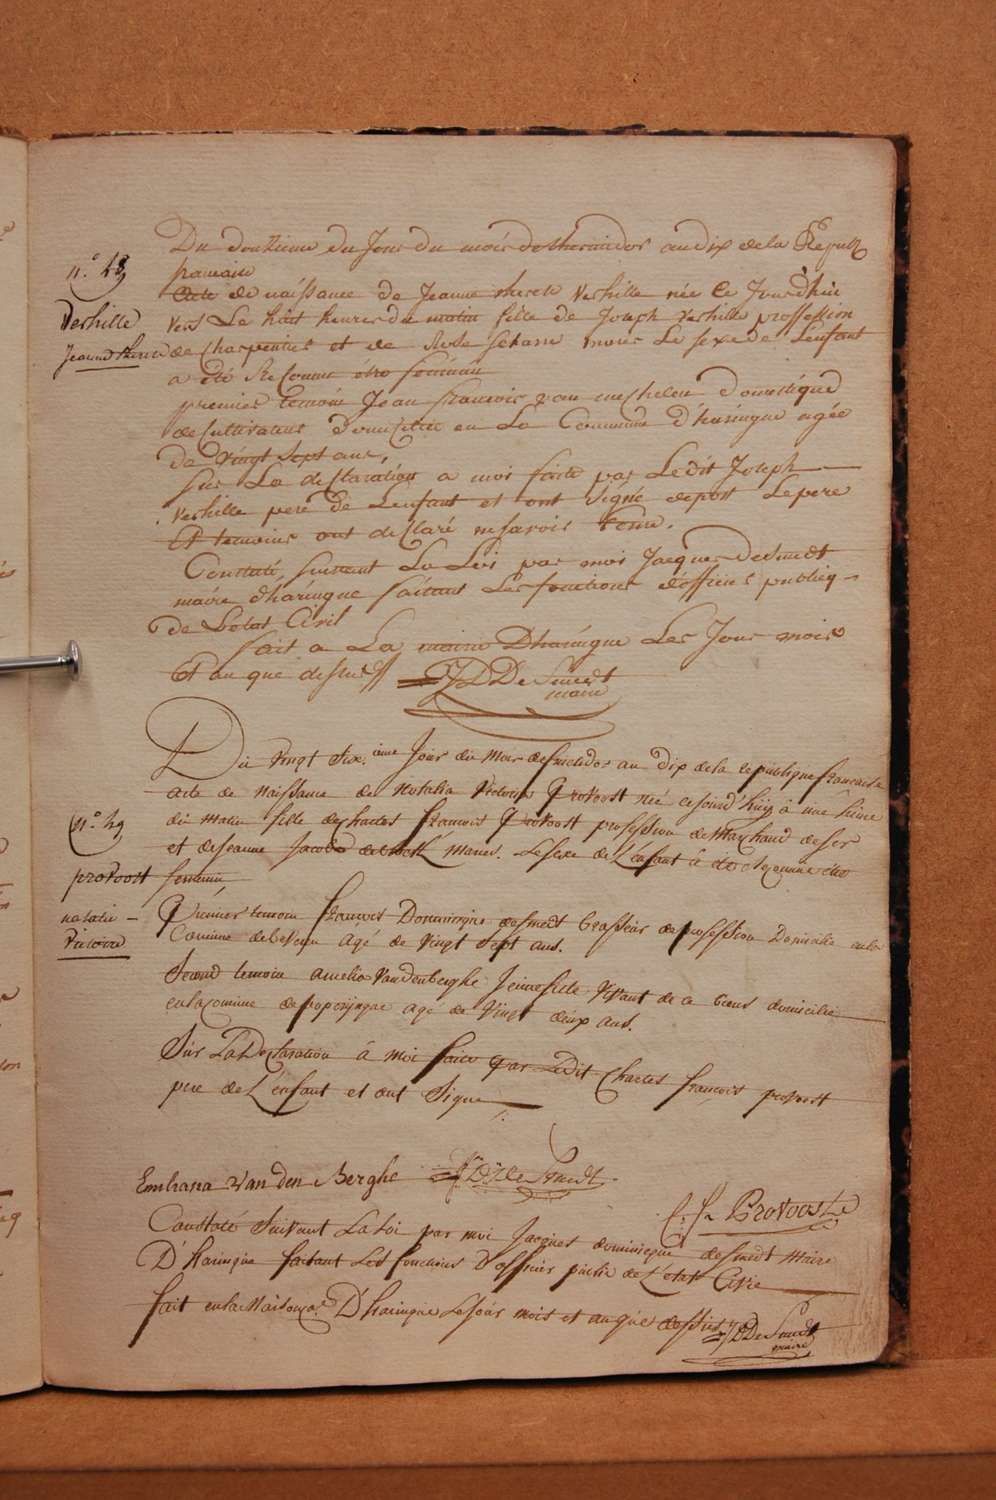 Du douzieme du Jour du mois de thermidor an dix de la Republ
francaise
n.° 48
Acte de naissance de Jeanne therese Verhille née ce Jourdhui
Verhille
vers Le huit heures du matin fille de Joseph Verhille profession
Jeanne therese
de Charpentier et de Rose mariés Le sexe de L'enfant
a été Reconnu étre féminin
premier temoin Jean francois van mechelen Domestique
de Cultivateur Domicilié en La Commune d'haringue agée
De vingt sept ans,
sur La declaration a moi faite par Ledit Joseph
Verhille pere de Lenfant et ont Signé Le pere
Et temoins ont declaré ne savoir
Constaté, suivant La Loi par moi Jacques Desmedt
maire d'haringue faisant Les fonctions d'officier publicq
de L'etat Civil
fait a La mairie D'haringue Les Jour mois
Et an que dessus JDDeSmedt
maire
Du vingt Six.ieme Jour du Mois de fructidor an Dix de la republique francaise
acte de Naissance de Natalia Victoria Provoost née cejourd'huy à une heure
n.° 49
du Matin fille de Charles francois Provoost profession de Marchand de fer
et de Jeanne Jacoba mariés. Le sexe de L'enfant à été
provoost
feminin
natalie
victoire
Premier temoin francois Dominique desmedt brasseur de profession Domicilié en la
Comune de beveren Agé de Vingt Sept ans.
Second temoin amelia Vandenberghe Jeune fille Vivant de ce biens domicilié
en la Comune de poperingue agé de Vingt deux ans.
Sur La Déclaration à moi faite par Ledit Charles francois provoost
pere de L'enfant et ont Signe
Emliana Van den Berghe
C. f. Provooste
Constaté Suivant La loi par moi Jacques dominique desmedt Maire
D'Haringue faisant Les fonctions D'officier public de L'état Civie
fait en la Maison D'Haringue Le Jour mois et an que dessus JDDeSmedt
maire